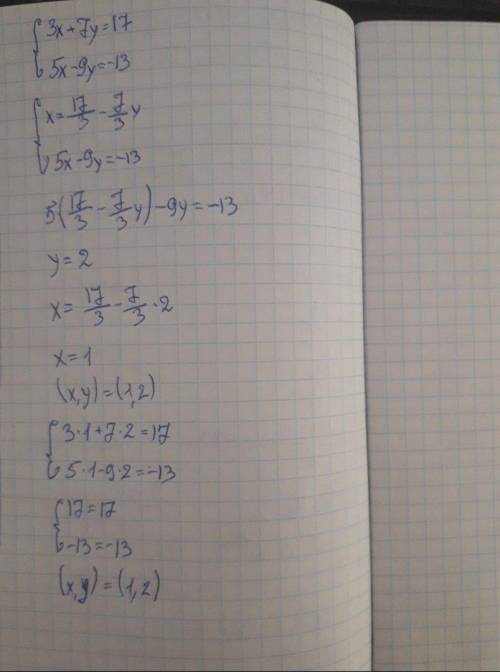 3x+7y=17
5x-9y=-13
x=17/3-7/3y
5x-9y=-13
5(17/3-7/3y)-9y=-13
y=2
x=17/3-7/3·2
x=1
(x,y)=(1,2)
3·1+7·2=17
5·1-9·2=-13
17=17
-13=-13
(x,y)=(1,2)